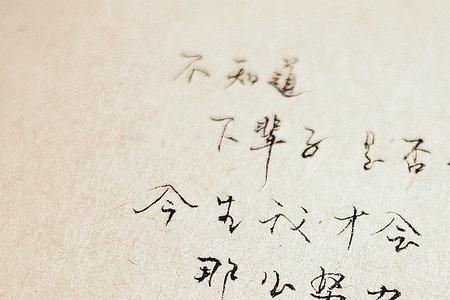 不知道
下辈子 是否
今生我才会
那么努力